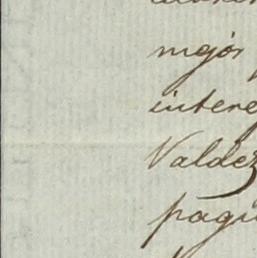 mejor
intere
Valdez
pagu